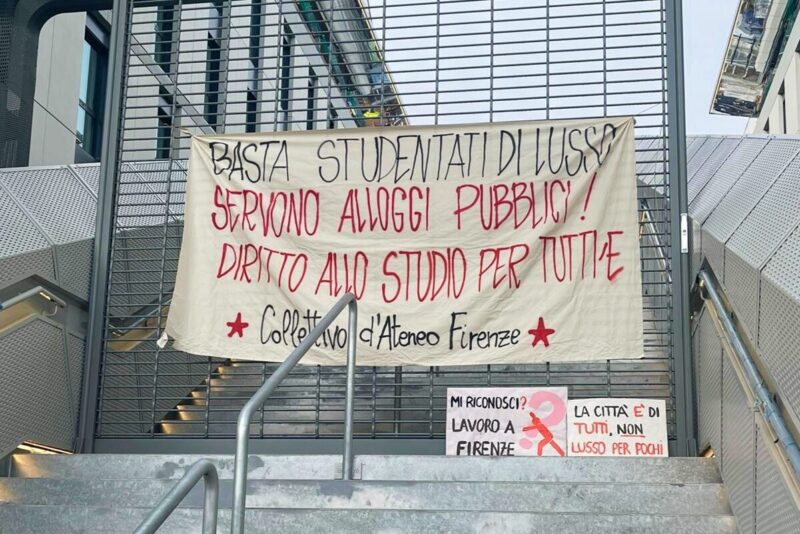 BASTA STUDENTATI DI LUSSO
SERVONO ALLOGGI PUBBLICI!
DIRITTO ALLO STUDIO PER TUTTI'E
★ Collettivo d'Ateneo Firenze ★
MI RICONOSCI?
LAVORO A
FIRENZE
LA CITTÀ E' DI
TUTTI, NON
LUSSO PER POCHI